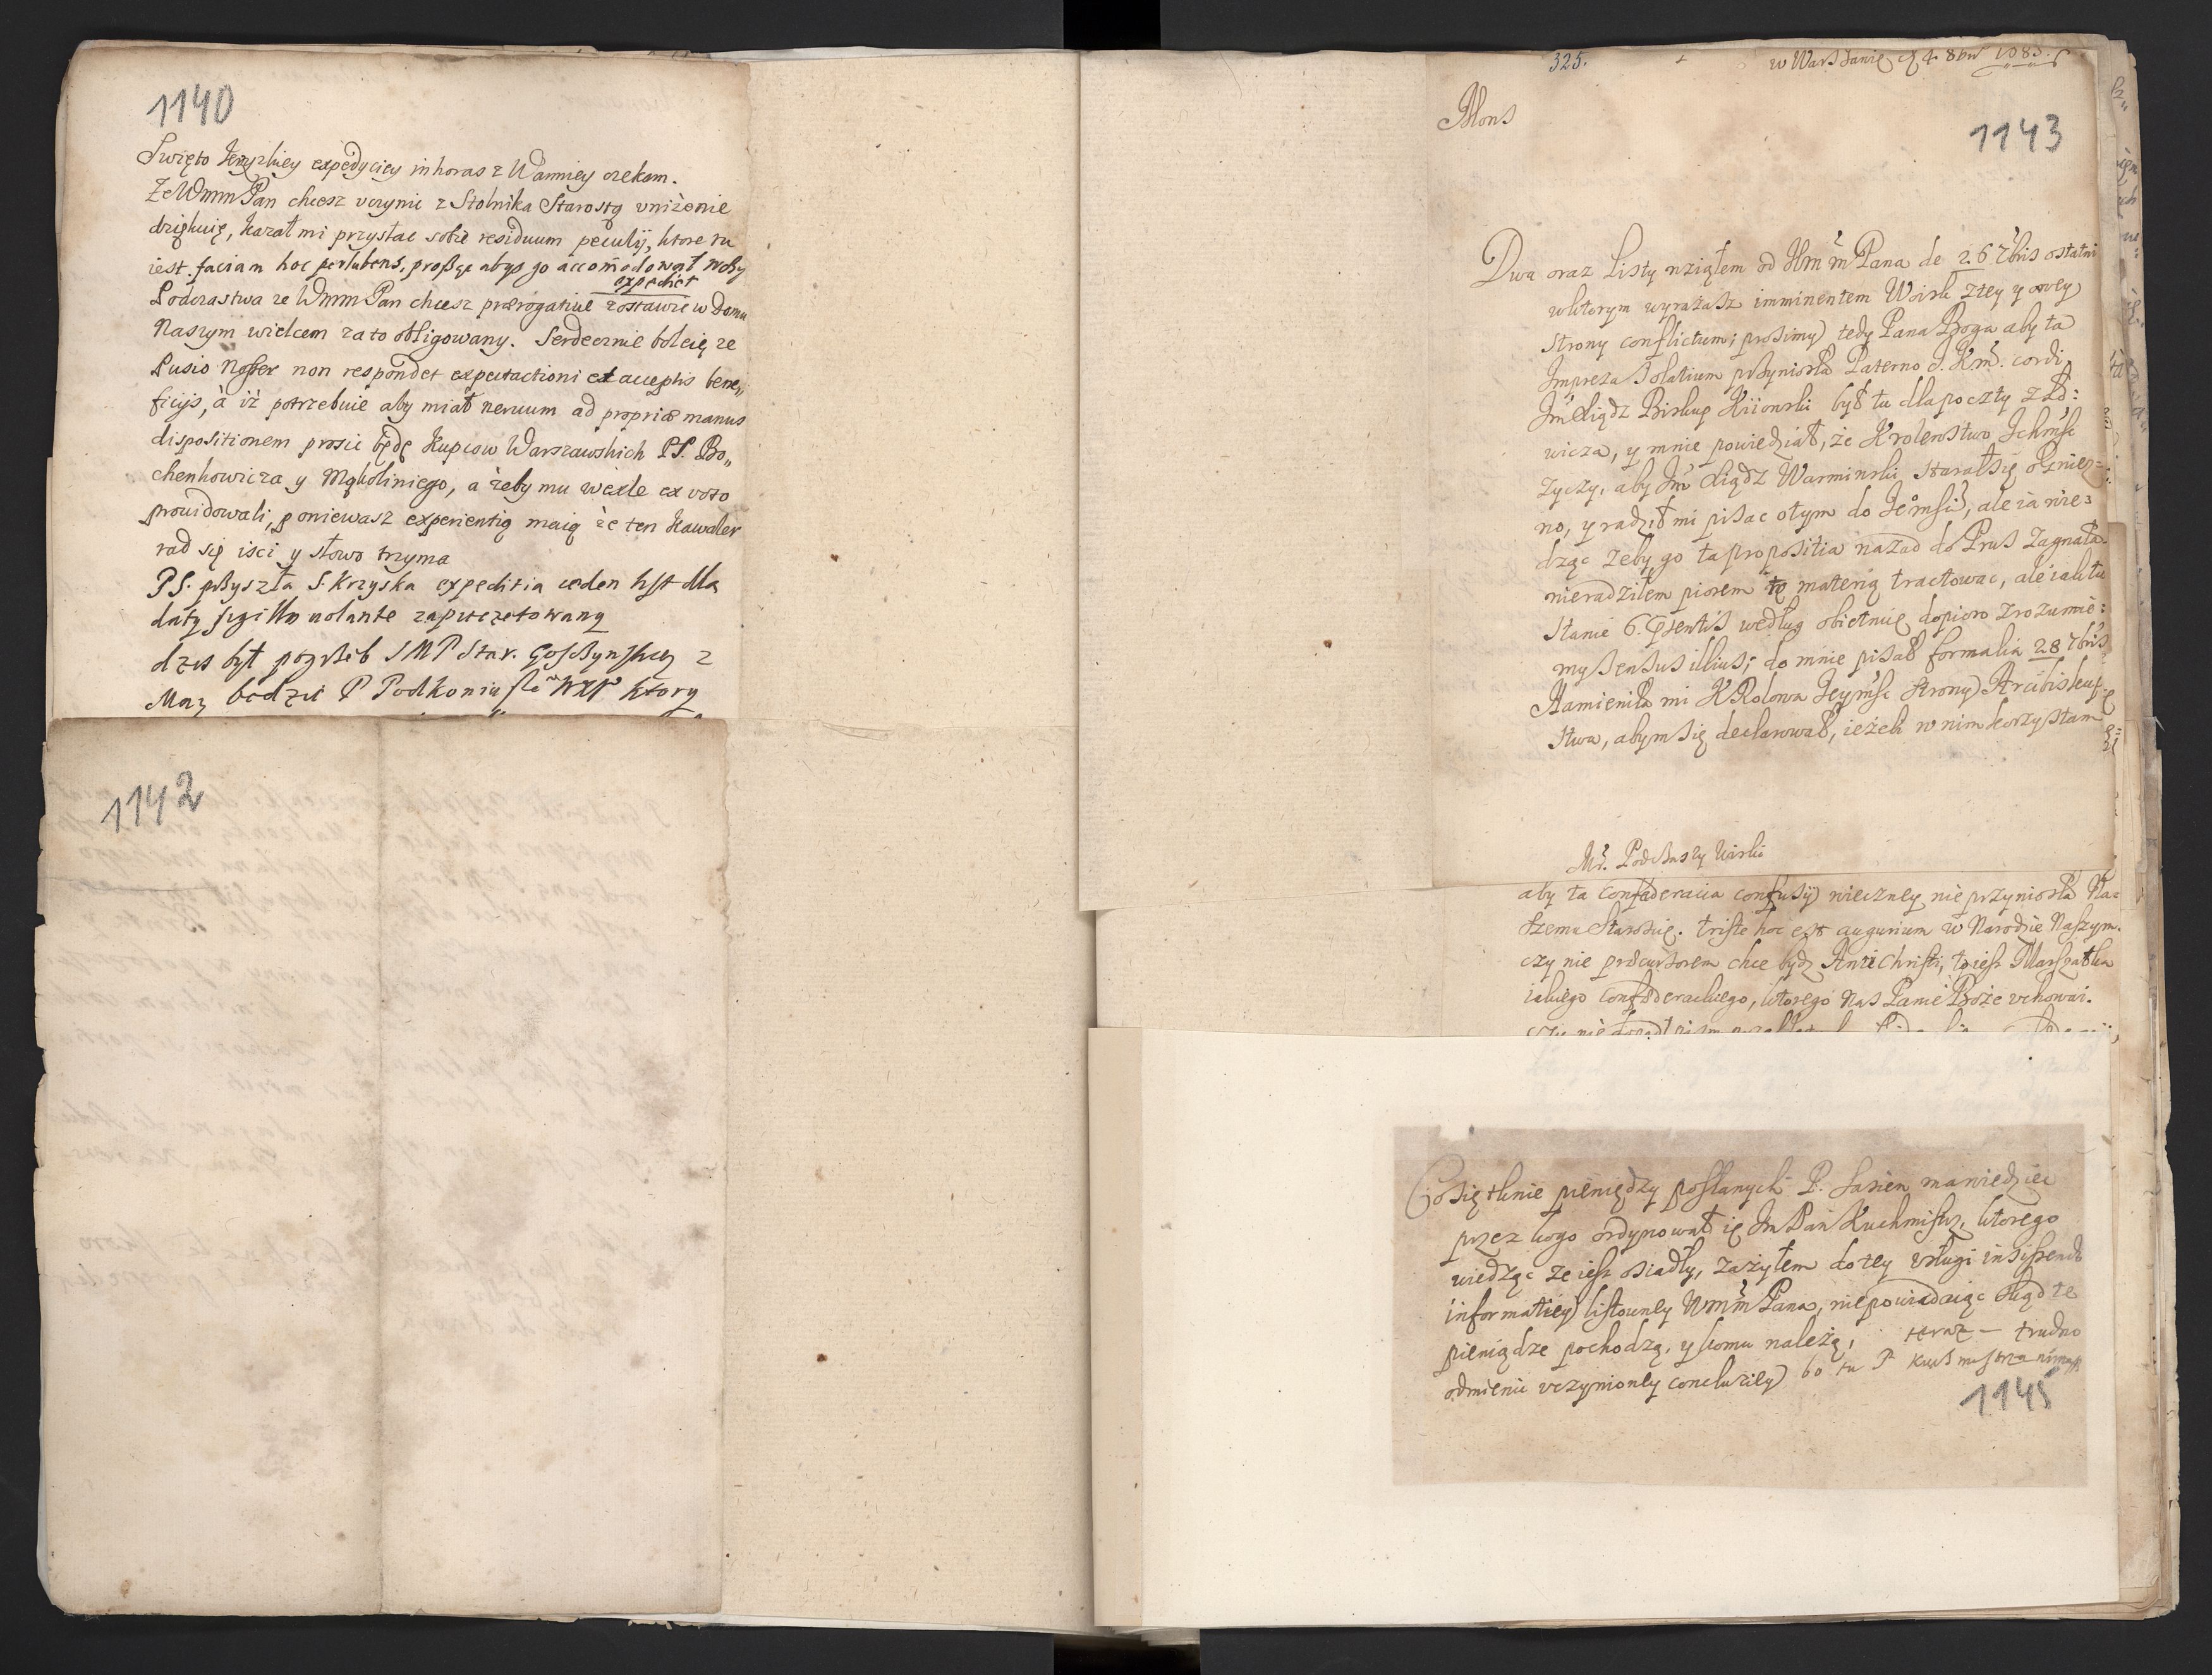 1140
Swięto Krzyzkiey expedyciey in horas z Warmiey czekam.
Ze WMM Pan chcesz vczynic z Stolnika Starostą vniżenie
dziękuię, kazał mi przysłac sobie residuum peculij, ktore tu
iest. faciam hoc perlubens, proszę abyś go accomodował
expediet
Podczastwa ze WMM Pan chcesz praerogatiuę zostawic w Domu
Naszym wielcem za to obligowany. Serdecznie boleię ze
Lusio Noster non respondet expectactioni et acceptis bene„
ficijs, à iż potrzebuie aby miał neruum ad propriae manus
dispositionem prosic będę Kupcow Warszawskich PP. Bo„
chenkowicza y Mąkoliniego, a żeby mu wexle ex voto
prouidowali, poniewasz experientią maią że ten Kawaler
rad się isci y słowo trzyma
PS. przyszła S. Krzyska expeditia ieden list dla
daty sigillo uolante zapieczętowany
dzis był pogrzeb JMP Star.
Maz bedzie P Podkoniu ktory
1142
325.
w Warszawie 4 8bris 1683.
Mons
1143
Dwa oraz Listy wziąłem od WMM Pana de 26 7bris ostatni
wktorym wyrażasz imminentem Woisk ztey y owey
strony conflictum; prosimy tedy Pana Boga aby ta
Impreza solatium przyniosła Paterno J. K. M. cordi
Jm Xiądz Biskup Kiiowski był tu dla poczty z
wicza, y mnie powiedział, że Krolewstwo Ichmsc
zyczy, aby Jm Xiądz Warminski starał się o Gniez=
no, y radził mi pisac o tym do Jemsci, ale ia wie=
dząc zeby go ta propositia nazad do Prus zagnała
nieradziłem piorem tę materią tractowac, ale iak tu
stanie 6. praesentis według obietnice dopioro zrozumie=
my sensus illius; do mnie pisał formalia 28 7bris
Namieniła mi Krolowa Jeymsc strony Arcibiskup
stwa, abym się declarował, ieżeli w nim korzystam
Mr. Podczaszy
aby ta Confaederacia confusij wieczney nie przyniosła Na=
szemu Staroscie. triste hoc est augurium w Narodzie Naszym.
czy nie praecursorem chce bydz Anti Christi, to iest Marszałka
iakiego Confaederackiego, ktorego nas Panie Boże vchoway.
Co się tknie pieniędzy posłanych P. Sarien ma wiedziec
przez kogo ordynował ie Jm Pan Kuchmistrz, ktorego
wiedząc ze iest osiadły, zażyłem do tey vsługi insistendo
informatiey listowney WMM Pana, nie powiadaiąc skąd te
pieniądze pochodzą, y komu należą, teraz — trudno
odmienic vczynioney conclusiey bo tu P Kuchmistrza nimasz
1145